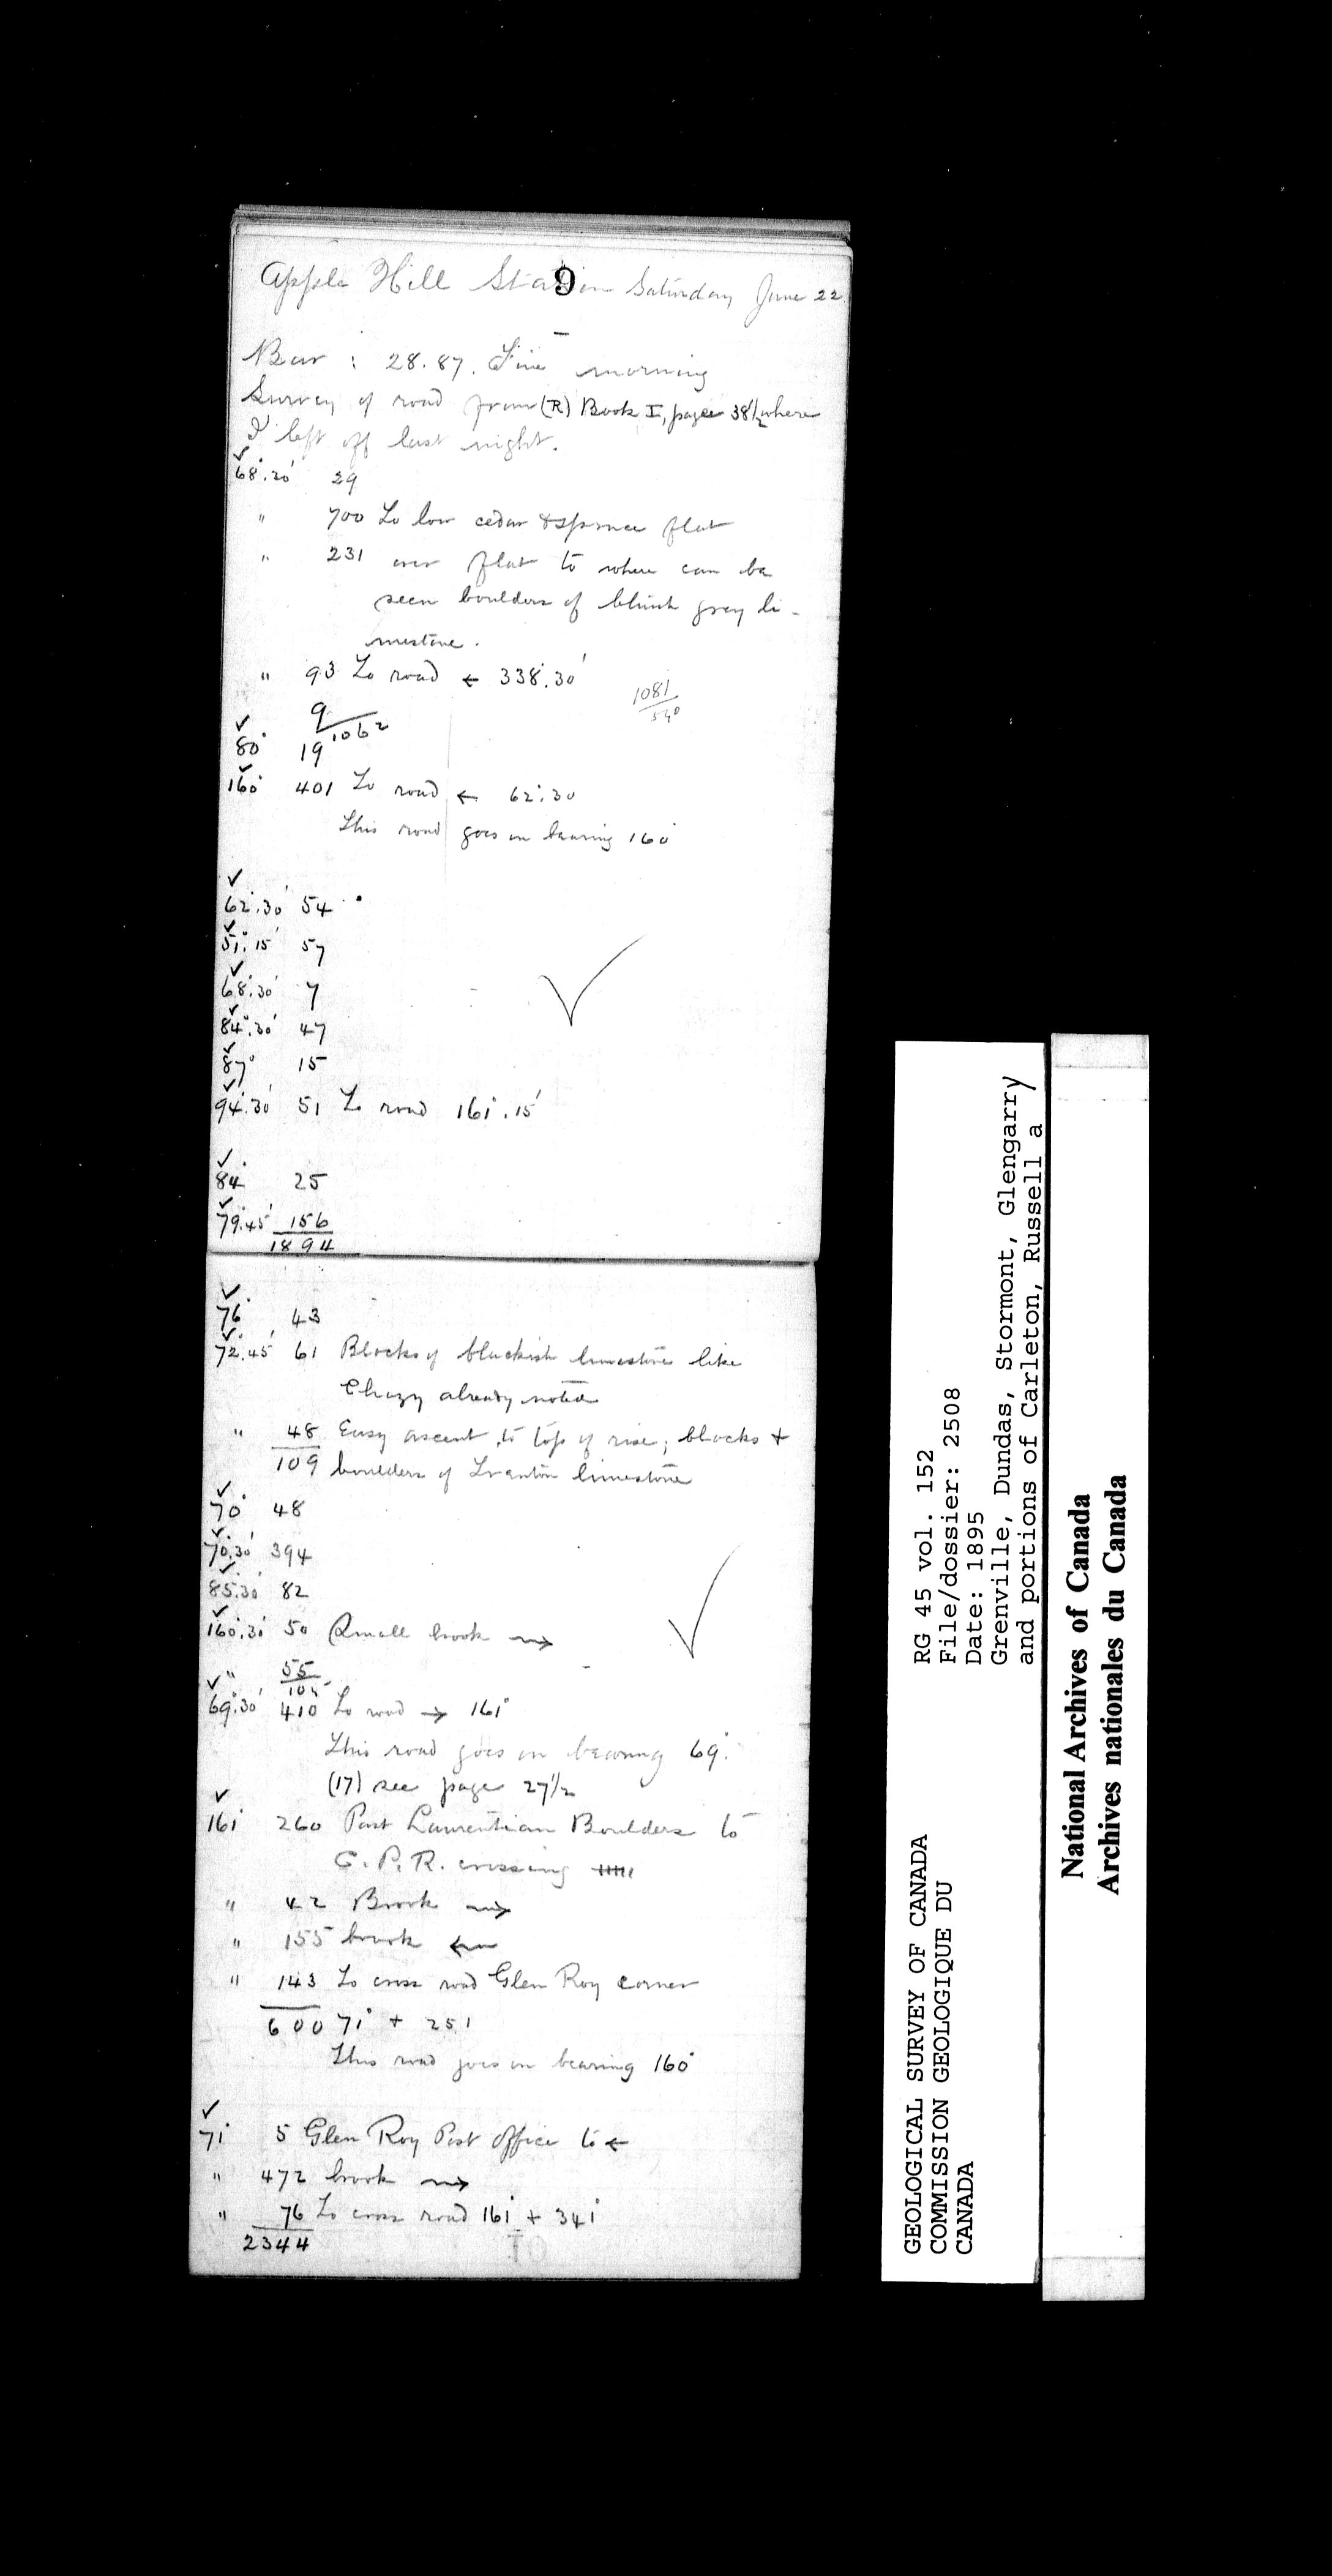 9
Apple Hill Station Saturday June 22
Bar : 28.87. Fine morning
Survey of road from (R) Book I, page 38½ where
I left off last night.
✓
68°.30' 29
" 700 To low cedar & spruce flat
" 231 over flat to where can be
seen boulders of bluish grey li-
mestone.
" 93 To road ← 338°.30'
1081
540
9
1062
✓
80° 19
✓
160° 401 To road ← 62°.30
This road goes on bearing 160°
✓
62°.30' 54
✓
51°.15' 57
✓
68°.30' 7
✓
84°.30' 47
✓
87° 15
✓
94°.30' 51 To road 161°.15'
✓
84° 25
✓
79°.45' 156
1894
✓
76° 43
✓
72°.45' 61 Blocks of blackish limestone like
Chazy already noted
" 48 Easy ascent to top of rise; blocks +
109 boulders of Trenton limestone
✓
70° 48
✓
70°.30' 394
✓
85°.30' 82
✓
160°.30' 50 Small brook →
" 55
105
✓
69°.30' 410 To road → 161°
This road goes on bearing 69°.
(17) see page 27½
✓
161° 260 Past Laurentian Boulders to
C. P. R. crossing
" 42 Brook →
" 155 brook ←
" 143 To cross road Glen Roy corner
600 71° + 251
This road goes on bearing 160°
✓
71° 5 Glen Roy Post Office to ←
" 472 brook →
" 76 To cross road 161° + 341°
2344
GEOLOGICAL SURVEY OF CANADA
COMMISSION GEOLOGIQUE DU
CANADA
RG 45 vol. 152
File/dossier: 2508
Date: 1895
Grenville, Dundas, Stormont, Glengarry
and portions of Carleton, Russell a
National Archives of Canada
Archives nationales du Canada